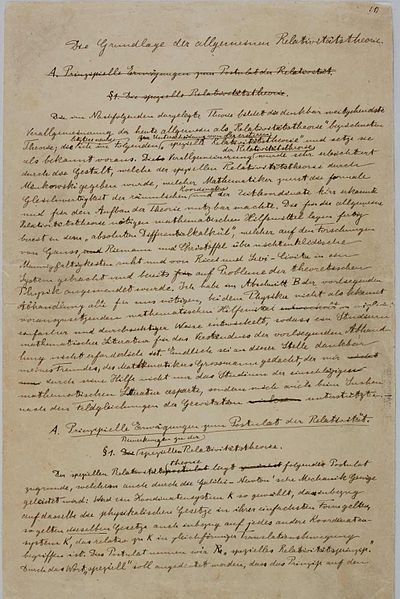 Die Grundlage der allgemeinen Relativitätstheorie.
A. Prinzipielle Erwägungen zum Postulat der Relativität.
§1. Die spezielle Relativitätstheorie.
Die im Nachfolgenden dargelegte Theorie bildet die denkbar weitgehendste
Verallgemeinerung der heute allgemein als "Relativitätstheorie" bezeichneten
Theorie; die
letztere nenne ich im Folgenden zur Unterscheidung von der ersteren
"spezielle Relativitätstheorie" und setze sie
als bekannt voraus. Die Verallgemeinerung
der Relativitätstheorie
wurde sehr erleichtert
durch die Gestalt, welche der speziellen Relativitätstheorie durch
Minkowski gegeben wurde, welcher Mathematiker zuerst die formale
Gleichwertigkeit der räumlichen und der Zeitkoordinate klar erkannte
und für den Aufbau der Theorie nutzbar machte. Die für die allgemeine
Relativitätstheorie nötigen mathematischen Hilfsmittel lagen fertig
bereit in dem "absoluten Differentialkalkül", welcher auf den Forschungen
von Gauss, Riemann und Christoffel über nichteuklidische
Mannigfaltigkeiten ruht und von Ricci und Levi-Civita in ein
System gebracht und bereits auf Probleme der theoretischen
Physik angewendet wurde. Ich habe im Abschnitt B der vorliegenden
Abhandlung alle für uns nötigen, bei dem Physiker nicht als bekannt
vorauszusetzenden mathematischen Hilfsmittel in möglichst
einfacher und durchsichtiger Weise entwickelt, sodass ein Studium
mathematischer Literatur für das Verständnis der vorliegenden Abhand-
lung nicht erforderlich ist. Endlich sei an dieser Stelle dankbar
meines Freundes, des Mathematikers Grossmann gedacht, der mir
durch seine Hilfe nicht nur das Studium der einschlägigen
mathematischen Literatur ersparte, sondern mich auch beim Suchen
nach den Feldgleichungen der Gravitation unterstützte.
A. Prinzipielle Erwägungen zum Postulat der Relativität.
Bemerkungen zu der
§1. Die spezielle Relativitätstheorie.
Der speziellen Relativitätstheorie liegt folgendes Postulat
zugrunde, welchem auch durch die Galilei-Newton'sche Mechanik Genüge
geleistet wird: Wird ein Koordinatensystem K so gewählt, dass inbezug
auf dasselbe die physikalischen Gesetze in ihrer einfachsten Form gelten,
so gelten dieselben Gesetze auch inbezug auf jedes andere Koordinaten-
system K', das relativ zu K in gleichförmiger Translationsbewegung
begriffen ist. Dies Postulat nennen wir "spezielles Relativitätsprinzip".
Durch das Wort "speziell" soll angedeutet werden, dass das Prinzip auf den